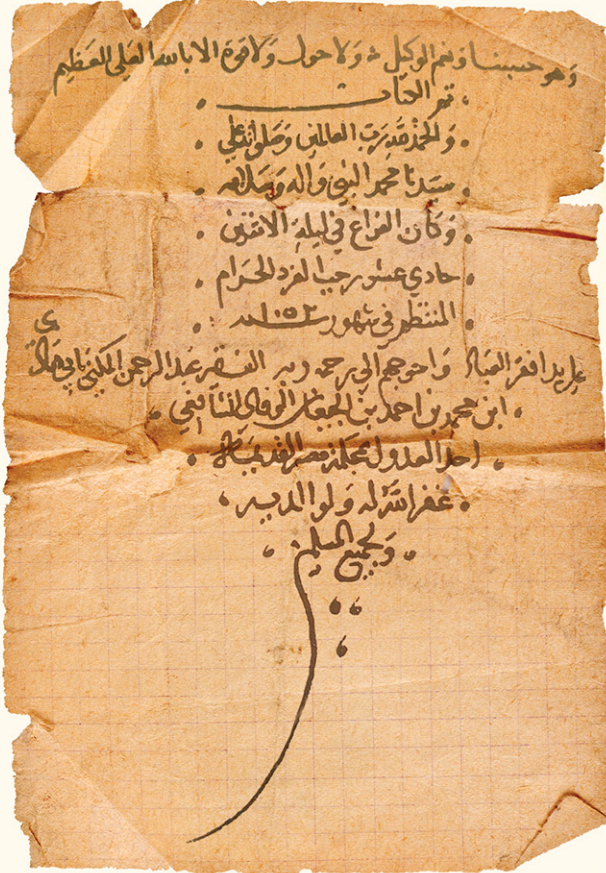 وهو حسبنا ونعم الوكيل ه ولا حول ولا قوة الا بالله العلي العظيم
تم الكتاب
والحمد لله رب العالمين وصلوات الله علي
سيدنا محمد النبي واله وسلامه
وكان الفراغ في ليلة الاثنين
حادي عشر رجب الفرد الحرام
المنتظم في شهور سنه ١٠٥٢
علي يد افقر العباد واحوجهم الي رحمة ربه الفقير عبد الرحمن المكني بابي هادي
ابن محمد بن احمد بن الوفاي الشافعي
احد العدول بمحكمة مصر القديمة
غفر الله له ولوالديه
ولجميع المسلمين